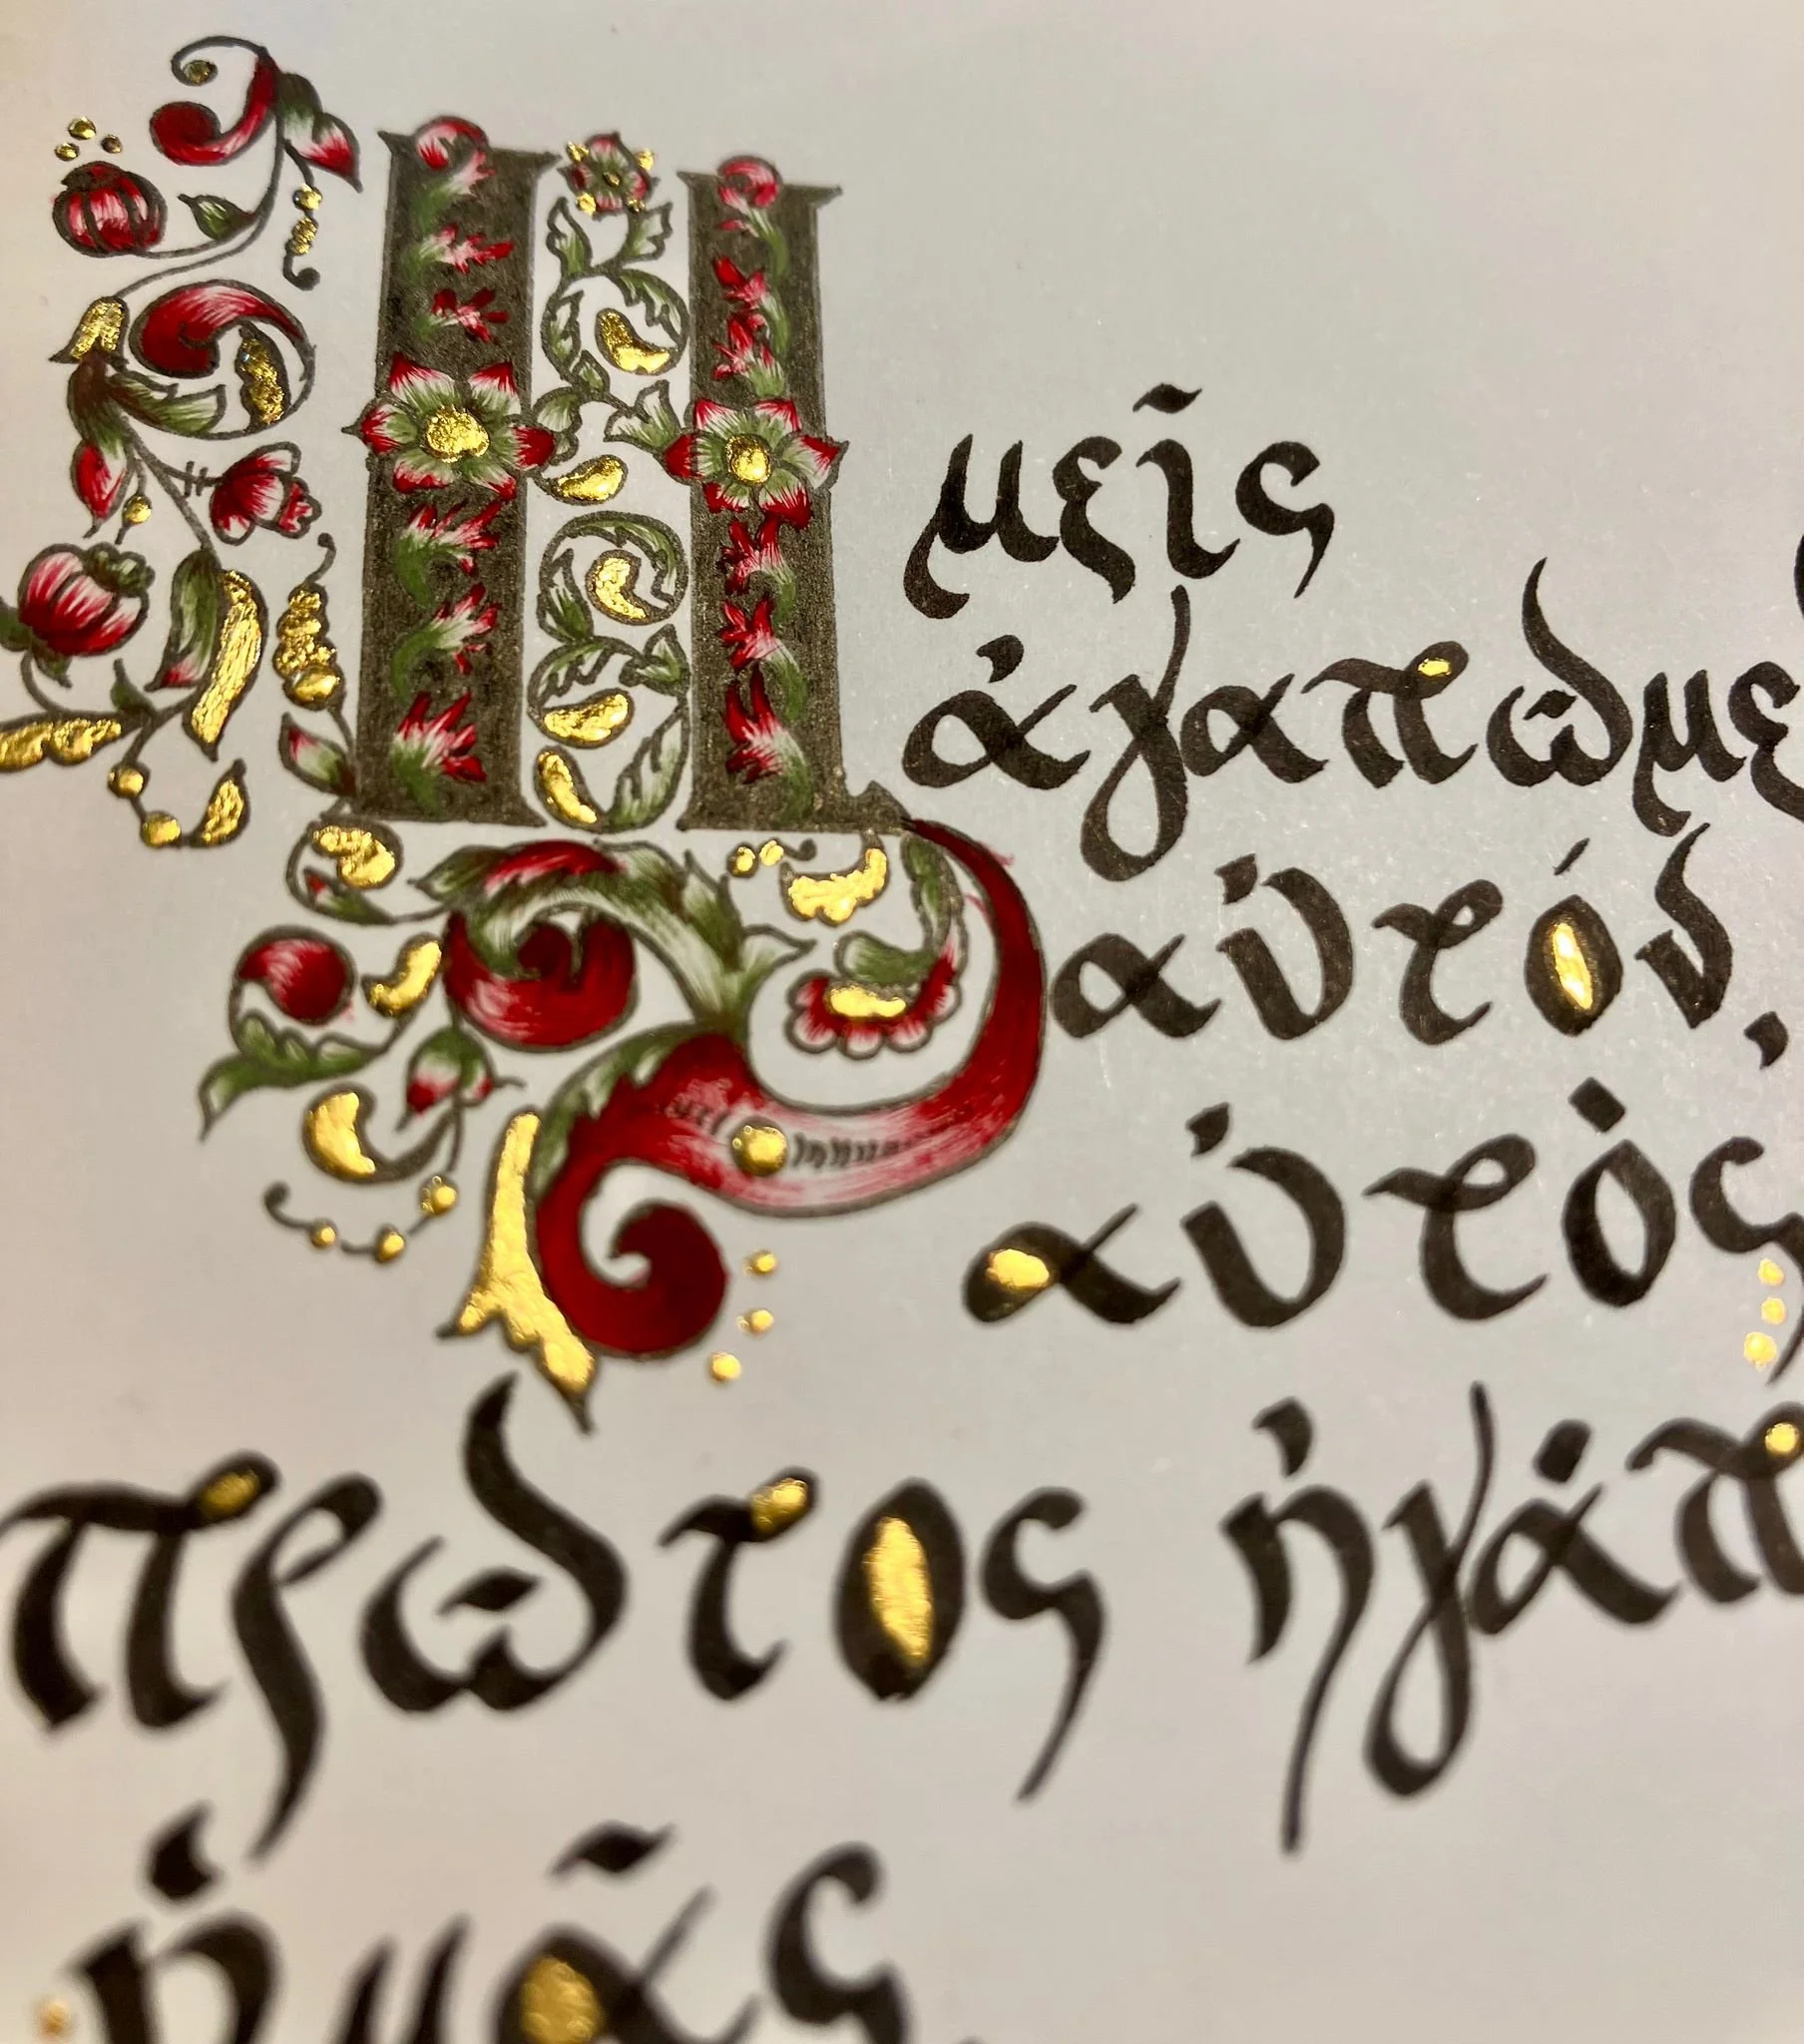 Ημεῖς
ἀγαπῶμε
αὐτόν,
αὐτὸς
πρῶτος ἠγάπ
ἡμᾶς